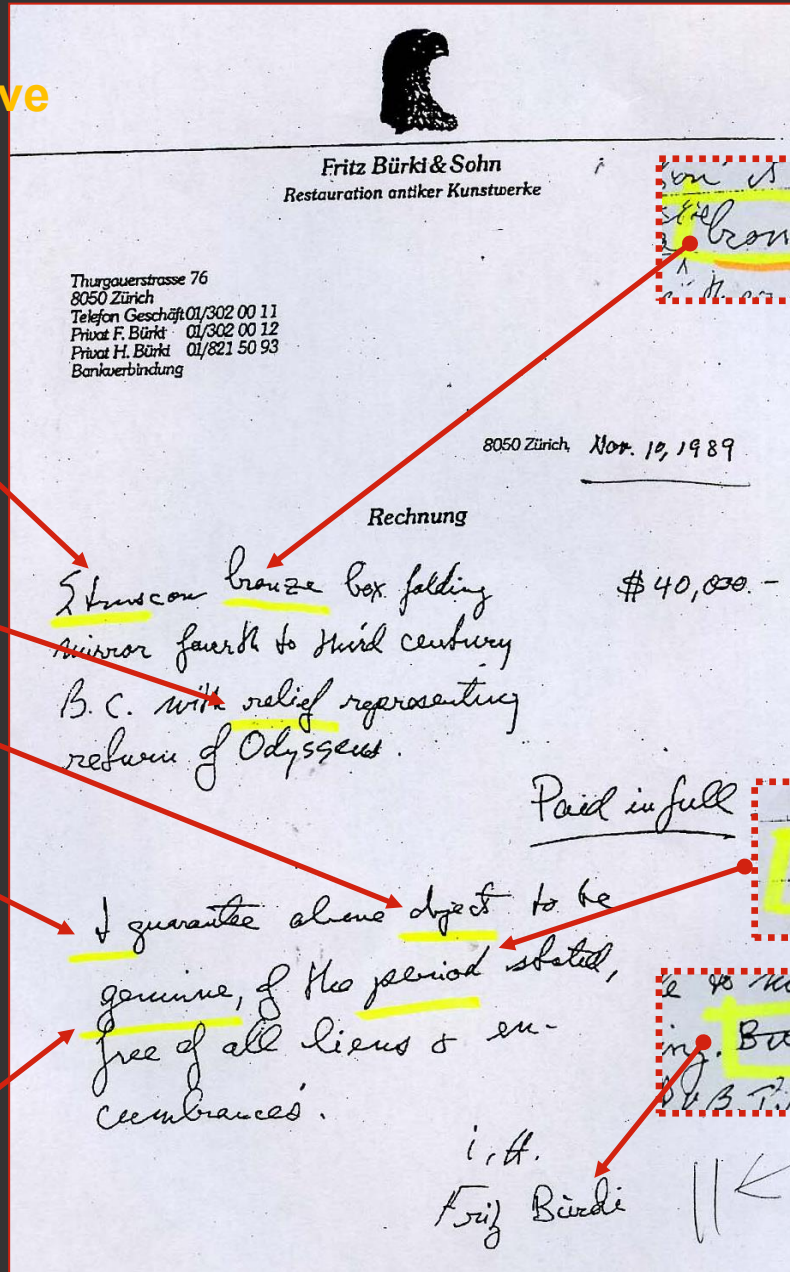 ve
Fritz Bürki & Sohn
Restauration antiker Kunstwerke
Thurgauerstrasse 76
8050 Zürich
Telefon Geschäft 01/302 00 11
Privat F. Bürki 01/302 00 12
Privat H. Bürki 01/821 50 93
Bankverbindung
8050 Zürich, Nov. 10, 1989
Rechnung
Etruscan bronze box folding $ 40,000.-
mirror fourth to third century
B.C. with relief representing
return of Odysseus.
Paid in full
I guarantee above object to be
genuine, of the period stated,
free of all liens & en-
cumbrances.
i.A.
Fritz Bürki